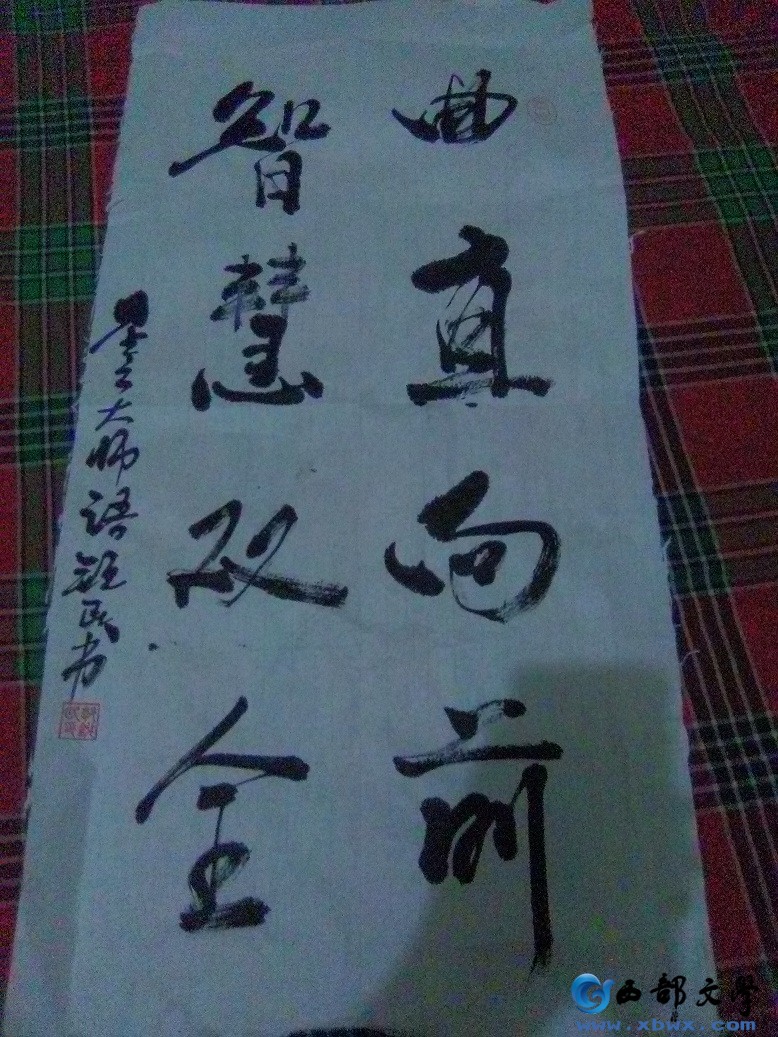 曲直向前
智慧双全
星云大师语 钰民书
西部文学
www.xbwx.com